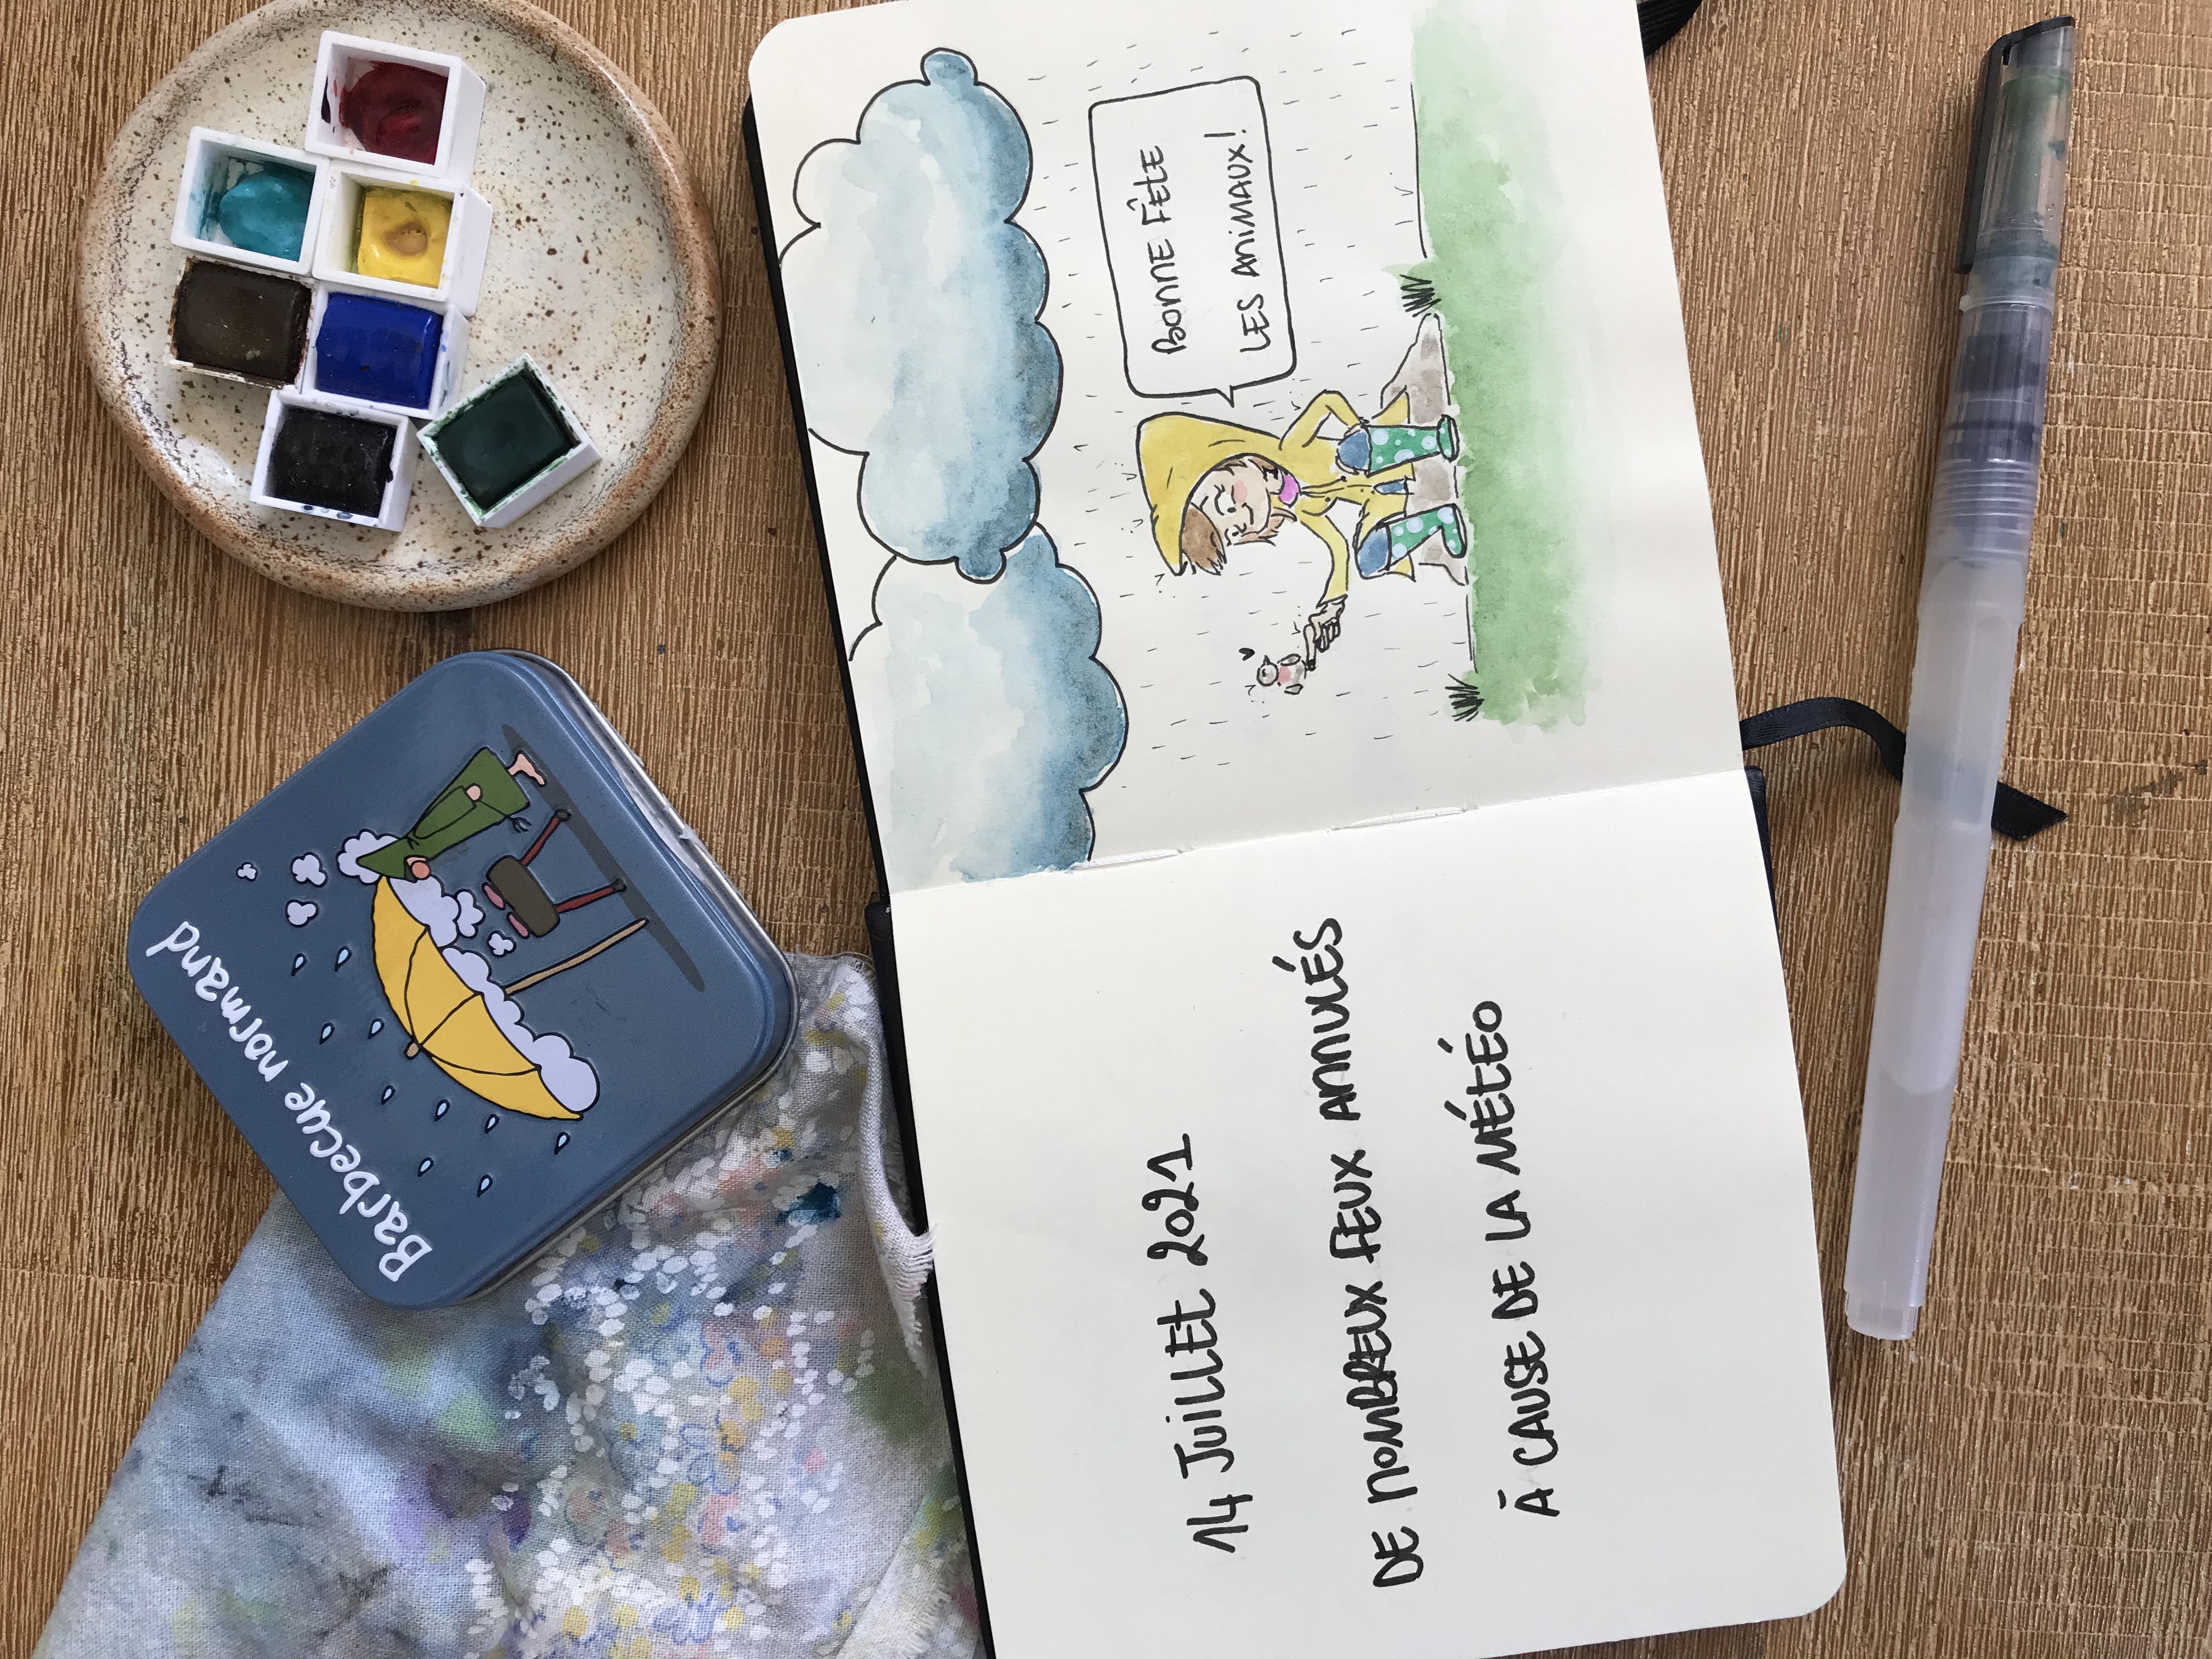 Barbecue normand
14 JUILLET 2021
DE NOMBREUX FEUX ANNULÉS
À CAUSE DE LA MÉTÉO
BONNE FÊTE
LES ANIMAUX!